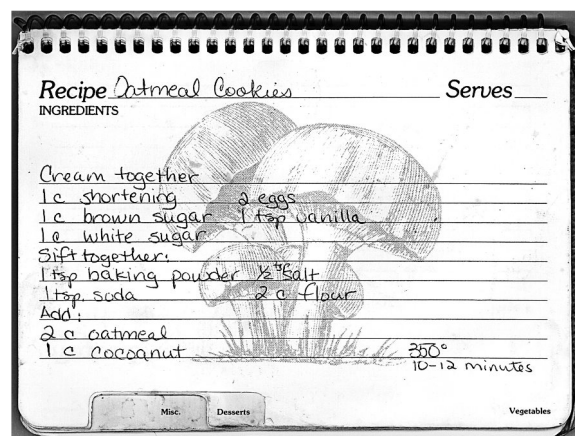 Recipe Oatmeal Cookies Serves
INGREDIENTS
Cream together
1 c shortening 2 eggs
1 c brown sugar 1 tsp vanilla
1 c white sugar
Sift together:
1 tsp baking powder ½ tsp salt
1 tsp. soda 2 c flour
Add:
2 c oatmeal
1 c cocoanut 350°
10-12 minutes
Misc. Desserts Vegetables